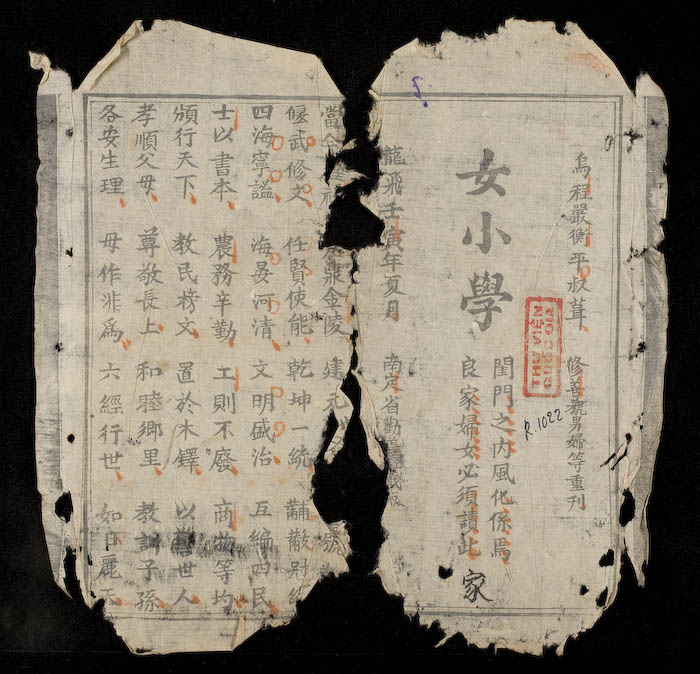 烏程嚴衡平叔葺 修善號男婦等重刊
女小學
閨門之内風化係焉
良家婦女必須讀此 家
THU VIEN
QUOC GIA
R.1022
龍飛壬寅年夏月 南定省勸善
當今 鼎金陵 建元 號
偃武修文 任賢使能 乾坤一統 黼黻
四海寧謐 海晏河清 文明盛治 互編四民
士以書本 農務辛勤 工則不廢 商 等均
頒行天下 教民榜文 置於木鐸 以 世人
孝順父母 尊敬長上 和睦鄉里 教訓子孫
各安生理 毋作非爲 六經行世 如日